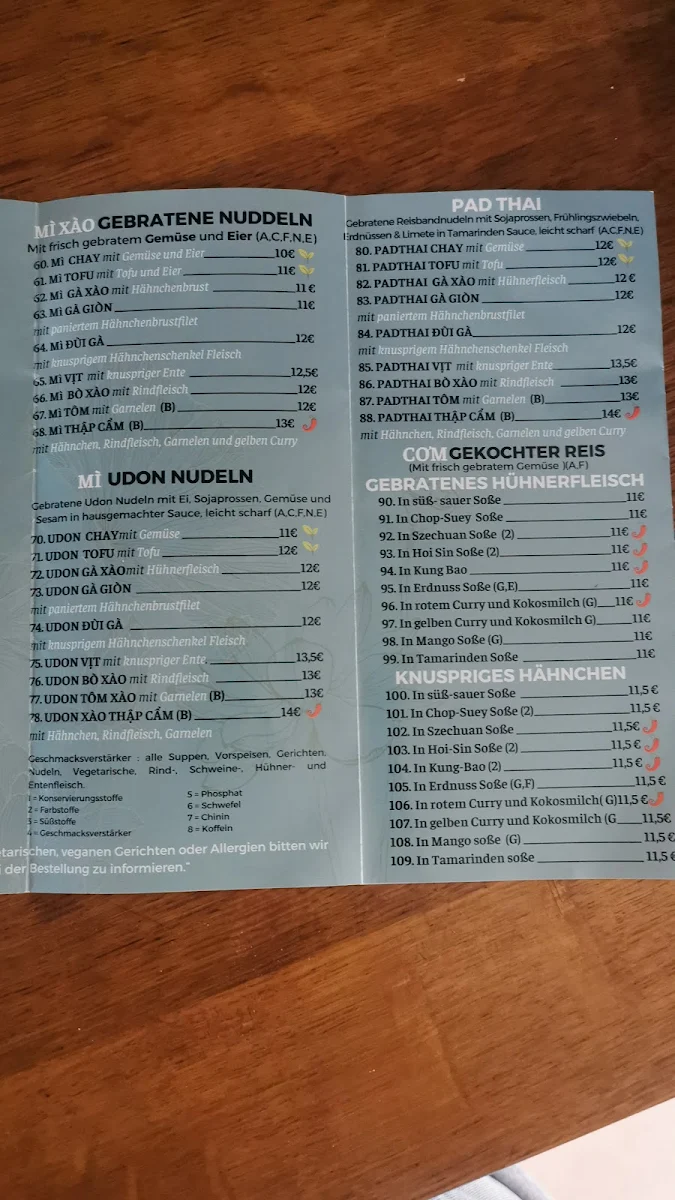 MÌ XÀO GEBRATENE NUDDELN
Mit frisch gebratem Gemüse und Eier (A,C,F,N,E)
60. Mì CHAY mit Gemüse und Eier 10€
61. Mì TOFU mit Tofu und Eier 11€
62. Mì GÀ XÀO mit Hähnchenbrust 11 €
63. Mì GÀ GIÒN 11€
mit paniertem Hähnchenbrustfilet
64. Mì ĐÙI GÀ 12€
mit knusprigem Hähnchenschenkel Fleisch
65. Mì VỊT mit knuspriger Ente 12,5€
66. Mì BÒ XÀO mit Rindfleisch 12€
67. Mì TÔM mit Garnelen (B) 12€
68. Mì THẬP CẨM (B) 13€
mit Hähnchen, Rindfleisch, Garnelen und gelben Curry
MÌ UDON NUDELN
Gebratene Udon Nudeln mit Ei, Sojaprossen, Gemüse und
Sesam in hausgemachter Sauce, leicht scharf (A,C,F,N,E)
70. UDON CHAY mit Gemüse 11€
71. UDON TOFU mit Tofu 12€
72. UDON GÀ XÀO mit Hühnerfleisch 12€
73. UDON GÀ GIÒN 12€
mit paniertem Hähnchenbrustfilet
74. UDON ĐÙI GÀ 12€
mit knusprigem Hähnchenschenkel Fleisch
75. UDON VỊT mit knuspriger Ente 13,5€
76. UDON BÒ XÀO mit Rindfleisch 13€
77. UDON TÔM XÀO mit Garnelen (B) 13€
78. UDON XÀO THẬP CẨM (B) 14€
mit Hähnchen, Rindfleisch, Garnelen
Geschmacksverstärker : alle Suppen, Vorspeisen, Gerichten,
Nudeln, Vegetarische, Rind-, Schweine-, Hühner- und
Entenfleisch.
1 = Konservierungsstoffe
2 = Farbstoffe
3 = Süßstoffe
4 = Geschmacksverstärker
5 = Phosphat
6 = Schwefel
7 = Chinin
8 = Koffein
etarischen, veganen Gerichten oder Allergien bitten wir
i der Bestellung zu informieren."
PAD THAI
Gebratene Reisbandnudeln mit Sojaprossen, Frühlingszwiebeln,
Erdnüssen & Limete in Tamarinden Sauce, leicht scharf (A,C,F,N,E)
80. PADTHAI CHAY mit Gemüse 12€
81. PADTHAI TOFU mit Tofu 12€
82. PADTHAI GÀ XÀO mit Hühnerfleisch 12 €
83. PADTHAI GÀ GIÒN 12€
mit paniertem Hähnchenbrustfilet
84. PADTHAI ĐÙI GÀ 12€
mit knusprigem Hähnchenschenkel Fleisch
85. PADTHAI VỊT mit knuspriger Ente 13,5€
86. PADTHAI BÒ XÀO mit Rindfleisch 13€
87. PADTHAI TÔM mit Garnelen (B) 13€
88. PADTHAI THẬP CẨM (B) 14€
mit Hähnchen, Rindfleisch, Garnelen und gelben Curry
CƠM GEKOCHTER REIS
(Mit frisch gebratem Gemüse )(A,F)
GEBRATENES HÜHNERFLEISCH
90. In süß- sauer Soße 11€
91. In Chop-Suey Soße 11€
92. In Szechuan Soße (2) 11€
93. In Hoi Sin Soße (2) 11€
94. In Kung Bao 11€
95. In Erdnuss Soße (G,E) 11€
96. In rotem Curry und Kokosmilch (G) 11€
97. In gelben Curry und Kokosmilch G) 11€
98. In Mango Soße (G) 11€
99. In Tamarinden Soße 11€
KNUSPRIGES HÄHNCHEN
100. In süß-sauer Soße 11,5 €
101. In Chop-Suey Soße (2) 11,5€
102. In Szechuan Soße 11,5€
103. In Hoi-Sin Soße (2) 11,5 €
104. In Kung-Bao (2) 11,5 €
105. In Erdnuss Soße (G,F) 11,5 €
106. In rotem Curry und Kokosmilch( G) 11,5 €
107. In gelben Curry und Kokosmilch (G 11,5€
108. In Mango soße (G) 11,5 €
109. In Tamarinden soße 11,5 €